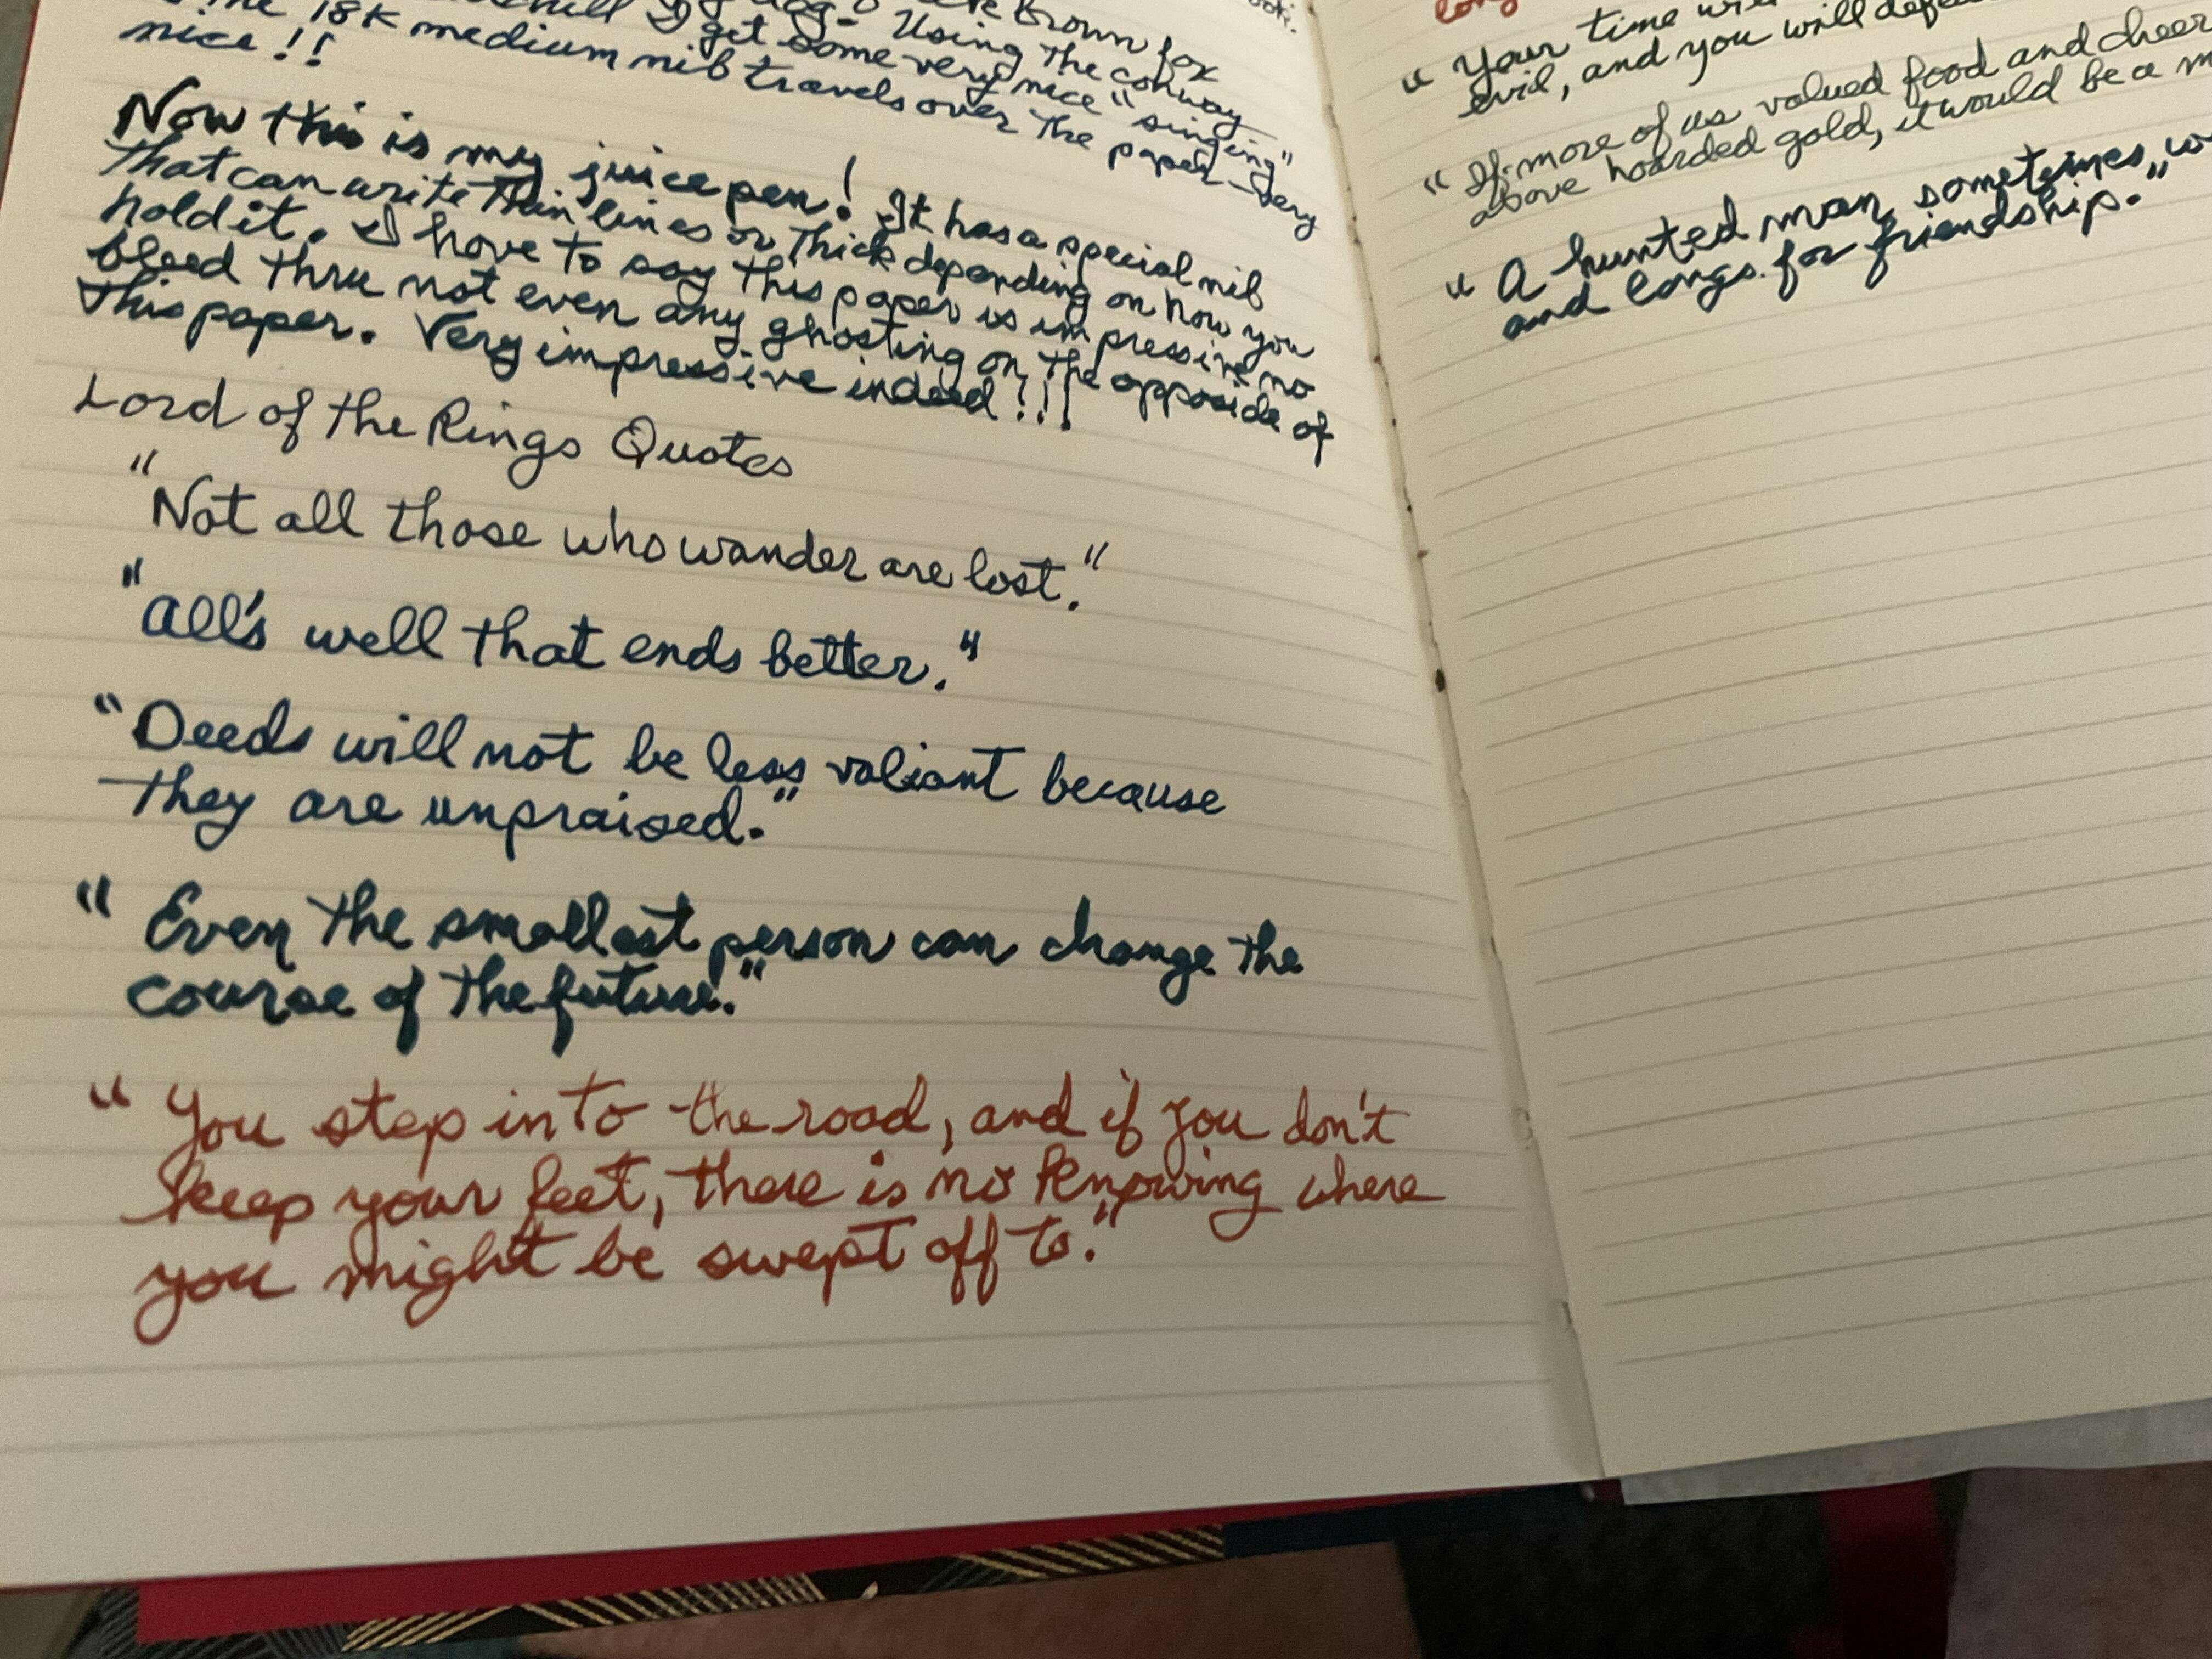 Brown fox
Using the Conway
I get some very nice "singing"
the 18K medium nib travels over the paper - very
nice!!
Now this is my juice pen! It has a special nib
that can write thin lines or thick depending on how you
hold it. I have to say this paper is impressive no
bleed thru not even any ghosting on the opposide of
this paper. Very impressive indeed!!!
Lord of the Rings Quotes
"Not all those who wander are lost."
"All's well that ends better."
"Deeds will not be less valiant because
they are unpraised."
"Even the smallest person can change the
course of the future."
"You step into the road, and if you don't
keep your feet, there is no knowing where
you might be swept off to."
"Your time
evil, and you will
"If more of us valued food and cheer
above hoarded gold, it would be a
"A hunted man sometimes
and longs for friendship."